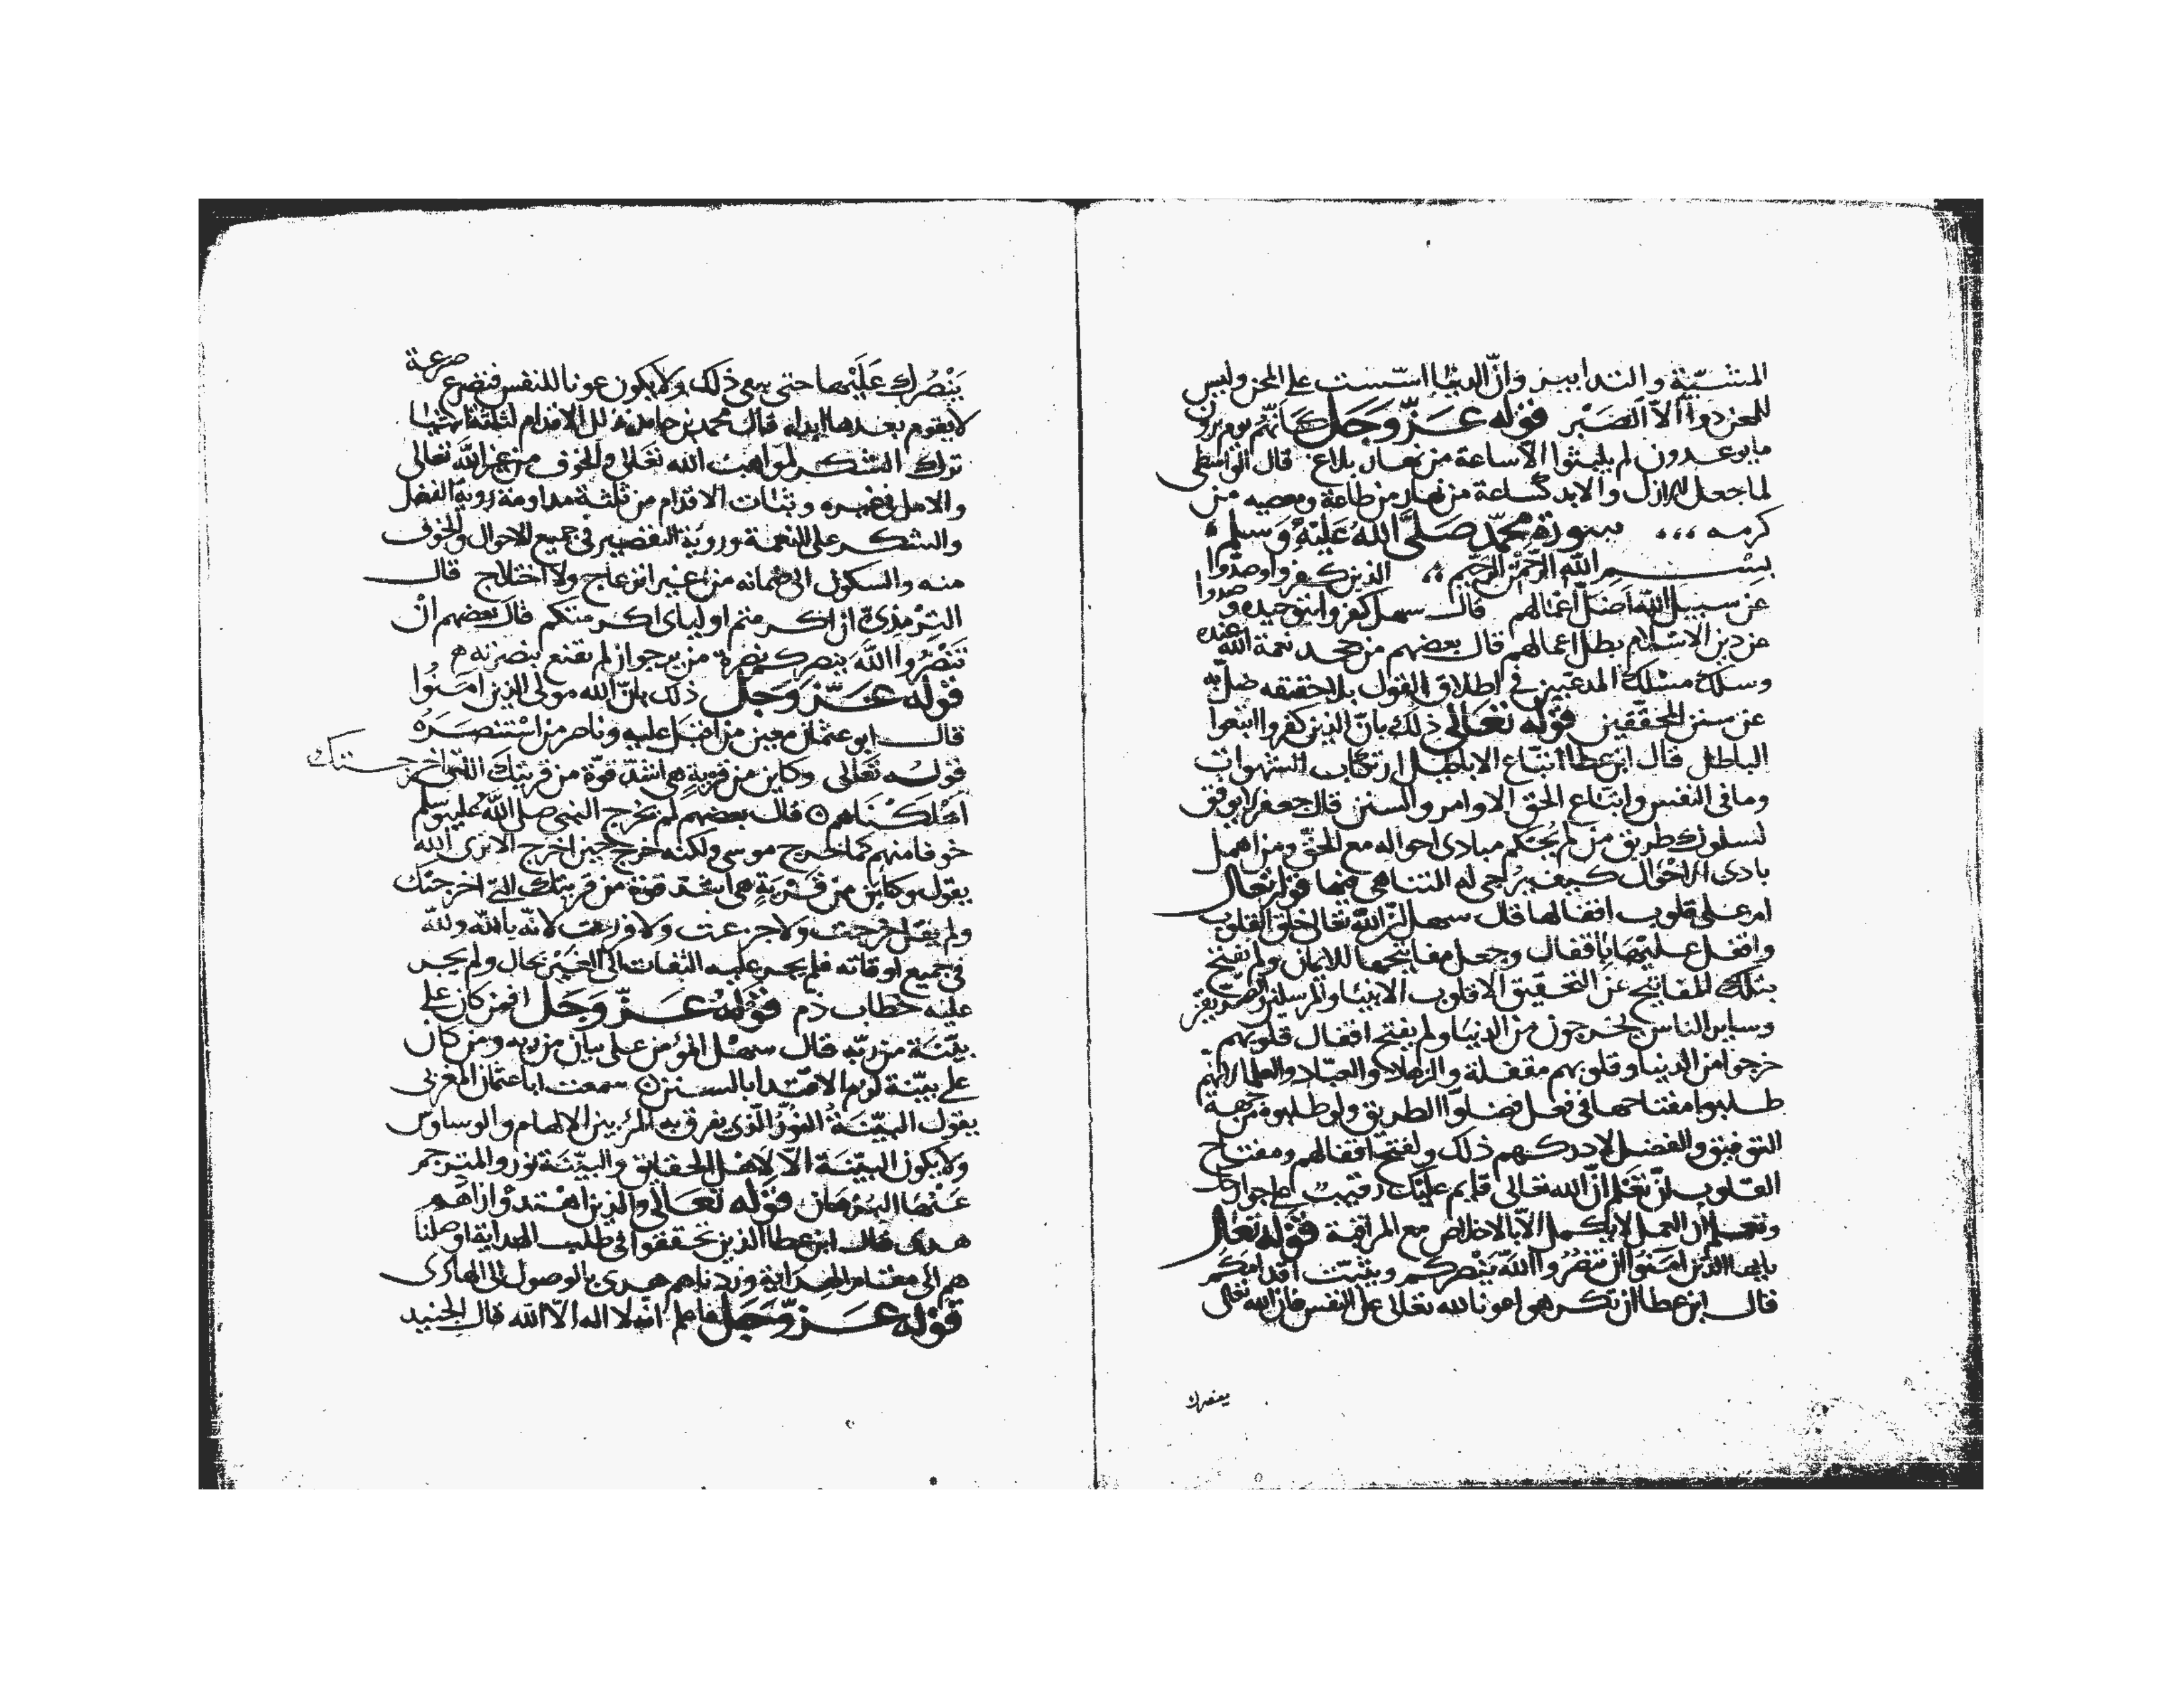 المشيّة والتدابير وانّ الدنيا اسّست على المحن وليس
للمحن دواً الاّ الصَبْر قوله عَزّ وَجَلّ كَانّهم يوم يرون
مايوعدون لم يلبثوا الاّساعة من نهار بلاغ قال الواسطى
لما جعل الازل والابد كساعة من نهار من طاعة ومعصيه من
كرمه ،،، سورة محمّد صَلَّى اللهُ عَلَيْهِ وَسلم
بسم الله الرّحمن الرّحيم ،، الذين كفروا وصدّوا
عن سبيل اللهِ اَضلّ اعمالهم قال سهل كفروا بتوحيده وصدوا
عن دين الاسلام بطل اعمالهم قال بعضهم من جحد نعمة الله عنده
وسلك مسلك المدعيين فى اطلاق القول بلاحقيقه ضلّ به
عن سنن المحقّقين قوله تعَالى ذلك بانّ الذين كفروا اتبعوا
الباطل قال ابن عطا اتباع الاباطيل ارتكاب الشهوات
ومافى النفس واتباع الحق الاوامر والسنن قال جعفر لايوفق
لسلوك طريق من لم يُحكم مبادى احواله مع الحقّ ومن اهمل
بادى الاحْوَال كيف يُرجى له التناهى فيها قوله تعالى
ام على قلوب اقفالها قال سهل انّ الله تعالى خلق القلوب
واقفل عليْهَا باقفال وجعل مفاتيحها للايمان ولم يفتح
بتلك المفاتيح عن التحقيق الا قلوب الانبيا والمرسلين والصديقين
وساير الناس يخرجون من الدنيا ولم يفتح اقفال قلوبهم
خرجوا من الدنيا وقلوبهم مقفلة والزهاد والعبّاد والعلما لانّهم
طلبوا مفتاحها فى فعل فضلوا الطريق ولو طلبوه من جهة
التوفيق والفضل لادركهم ذلك ولفتح اقفالهم ومفتاح
القلوب ان تعلم انّ الله تعالى قايم عليك رقيب على جوارحك
وتعلم ان العمل لايكمل الاّ بالاخلاص مع المراقبة قوله تعالى
ياايها الذين امَنُوا ان تَنصُرُوا اللهَ يَنْصركم ويثبّت اقدامَكُم
قال ابن عطا ان تكن هو اعونا لله تعالى على النفس فان الله تعالى
ينصرك
يَنْصُرك عَلَيْهَا حتى ينعى ذلك ولايكون عونا للنفس فتصرع صرعة
لايقوم بعدها ابداه قال محمد بن حامد زلل الاقدام لثلثة اشيا
ترك الشكر لمواهب الله تعالى والخوف من غير الله تعالى
والامل فى غيره وثبات الاقدام من ثلثة مداومة روية الفضل
والشكر على النعمة وروية التقصير فى جميع الاحوال والخوف
منه والسكون الى ضمانه من غير انزعاج ولا اختلاج قال
التِرْمِذىّ ان اكرمتم اوليائ اكرمتكم قال بعضهم انْ
تَنْصُرُوا اللهَ ينصركم نصرة من يرجو ان لم يقنع بنصرته ه
قوله عَزّ وَجَلّ ذلك بانّ الله مولى الذين امَنُوا
قال ابو عثمان معين من اقبل عليه وناصر من اسْتنصَرَهُ
قوله تعَالى وكاين من قريةٍ هى اشدّ قوّة من قريتك اللتى اخرجتك
اَهْلكنَاهم ۞ قال بعضهم لم يخرج النبى صلى الله عليه وسلم
خوفا منهم كما خرج موسى ولكنه خرج حين اخرج الاترى الله
يقول وكاين من قَرْيَةٍ هى اشد قوّة من قريتك التى اخرجتك
ولم يقل خرجت ولاجزعت ولافزعت لانّه بالله ولله
فى جميع اوقاته فلم يجر عليه التفات الى الغيْر بحال ولم يجر
عليه خطاب ذم قوْلهُ عَزّ وَجَلّ افمن كان على
بيّنة من ربّه قال سهل المؤمن على بيان من ربه ومن كان
على بيّنة لزم الاقتدا بالسنن ۞ سمعت ابا عثمان المغربى
يقول البيّنة النُورُ الّذى يفرق به المرء بين الالهام والوساوس
ولايكون البيّنة الاّ لاهل الحقايق والبيّنة نور والمترجم
عَنْهَا البُرْهان قوْله تعَالى والذين اهْتدوْا زادهم
هدى قال ابن عطا الذين تحققوا فى طلب الهداية اوصلنا
هم الى مقام الهداية وزدناهم هدى بالوصول الى الهادى
قوْله عَزّ وَجَلّ فاعلم انّه لا اله الاّ الله قال الجنيد